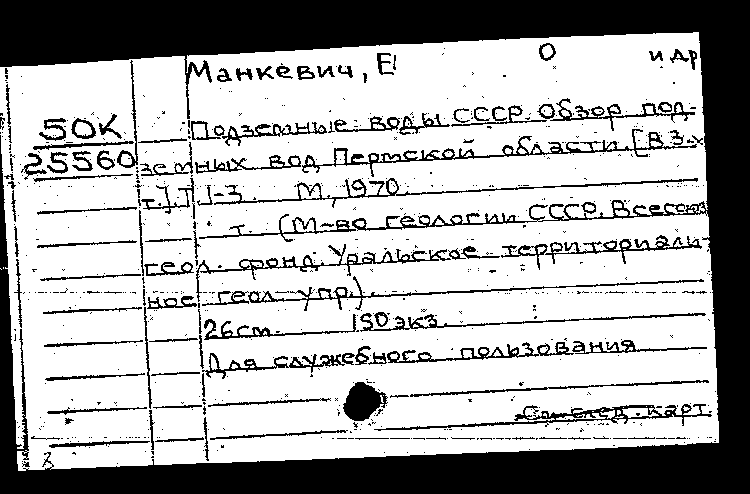 Манкевич, Е О и др
50К
25560
Подземные воды СССР. Обзор под-
земных вод Пермской области. [В 3-х
т.]. Т 1-3. М, 1970.
т. (М-во геологии СССР. Всесоюз
геол. фонд. Уральское территориаль-
ное геол упр.).
26 см. 150 экз.
Для служебного пользования
См. след. карт.